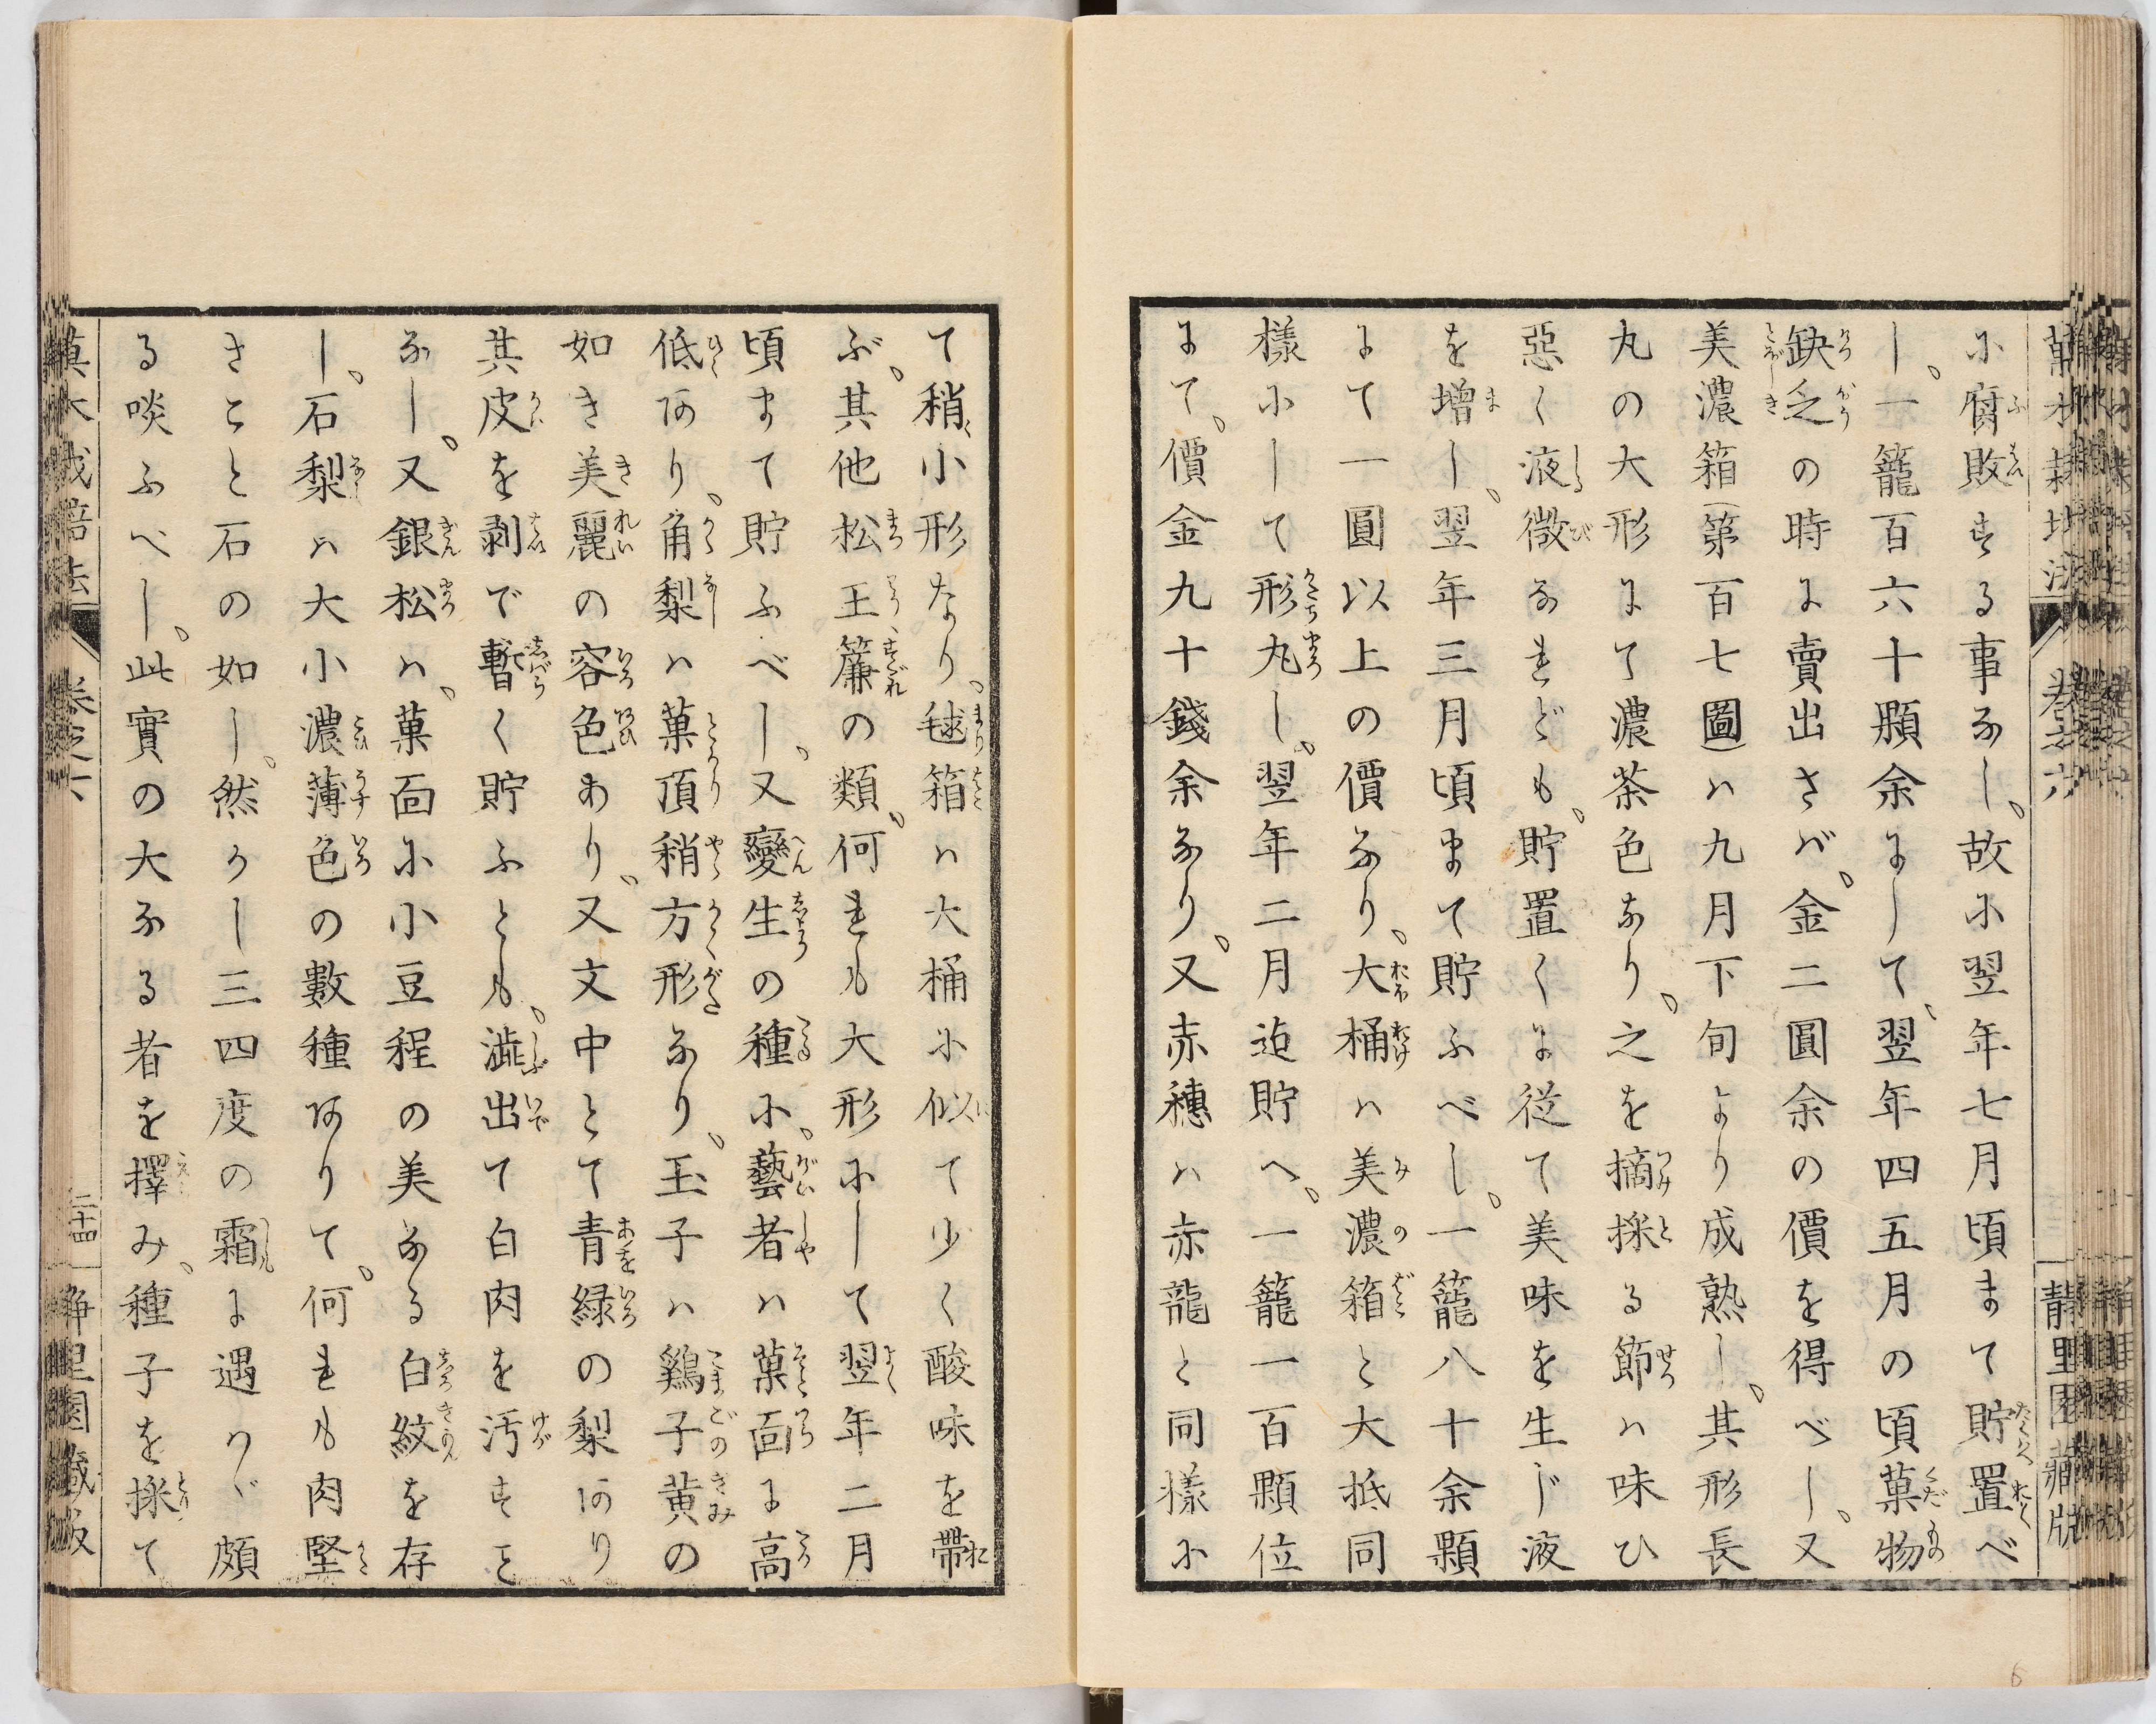 に腐敗する事なし。故に翌年七月頃まて貯置べ
し。一籠百六十顆余にして、翌年四五月の頃菓物
缺乏の時に賣出さバ、金二圓余の價を得べし、又
美濃箱(第百七圖)ハ九月下旬より成熟し、其形長
丸の大形にて濃茶色なり、之を摘採る節ハ味ひ
惡く液微なれども、貯置くに従て美味を生じ液
を増し、翌年三月頃まて貯ふべし。一籠八十余顆
にて一圓以上の價なり、大桶ハ美濃箱と大抵同
様にして形丸し、翌年二月迠貯へ、一籠一百顆位
にて、價金九十錢余なり、又赤穗ハ赤龍と同樣に
て稍小形なり、毬箱ハ大桶に似て少く酸味を帶
ぶ、其他松王簾の類、何れも大形にして翌年二月
頃まて貯ふべし、又變生の種に、藝者ハ菓面に高
低あり、角梨ハ菓頂稍方形なり、玉子ハ鷄子黄の
如き美麗の容色あり、又文中とて青緑の梨あり
其皮を剥で暫く貯ふとも、澁出て白肉を汚すこと
なし、又銀松ハ、菓面に小豆程の美なる白紋を存
し、石梨ハ大小濃薄色の數種ありて、何れも肉堅
きこと石の如し。然かし三四度の霜に遇ハバ頗
る啖ふべし、此實の大なる者を擇み、種子を採て
卷之六
二十四
静里園藏版